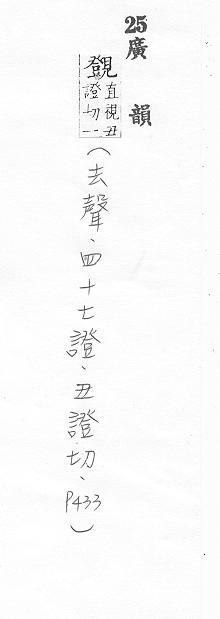 25廣韻
覴直視丑證切一(去聲、四十七證、丑證切、P433)